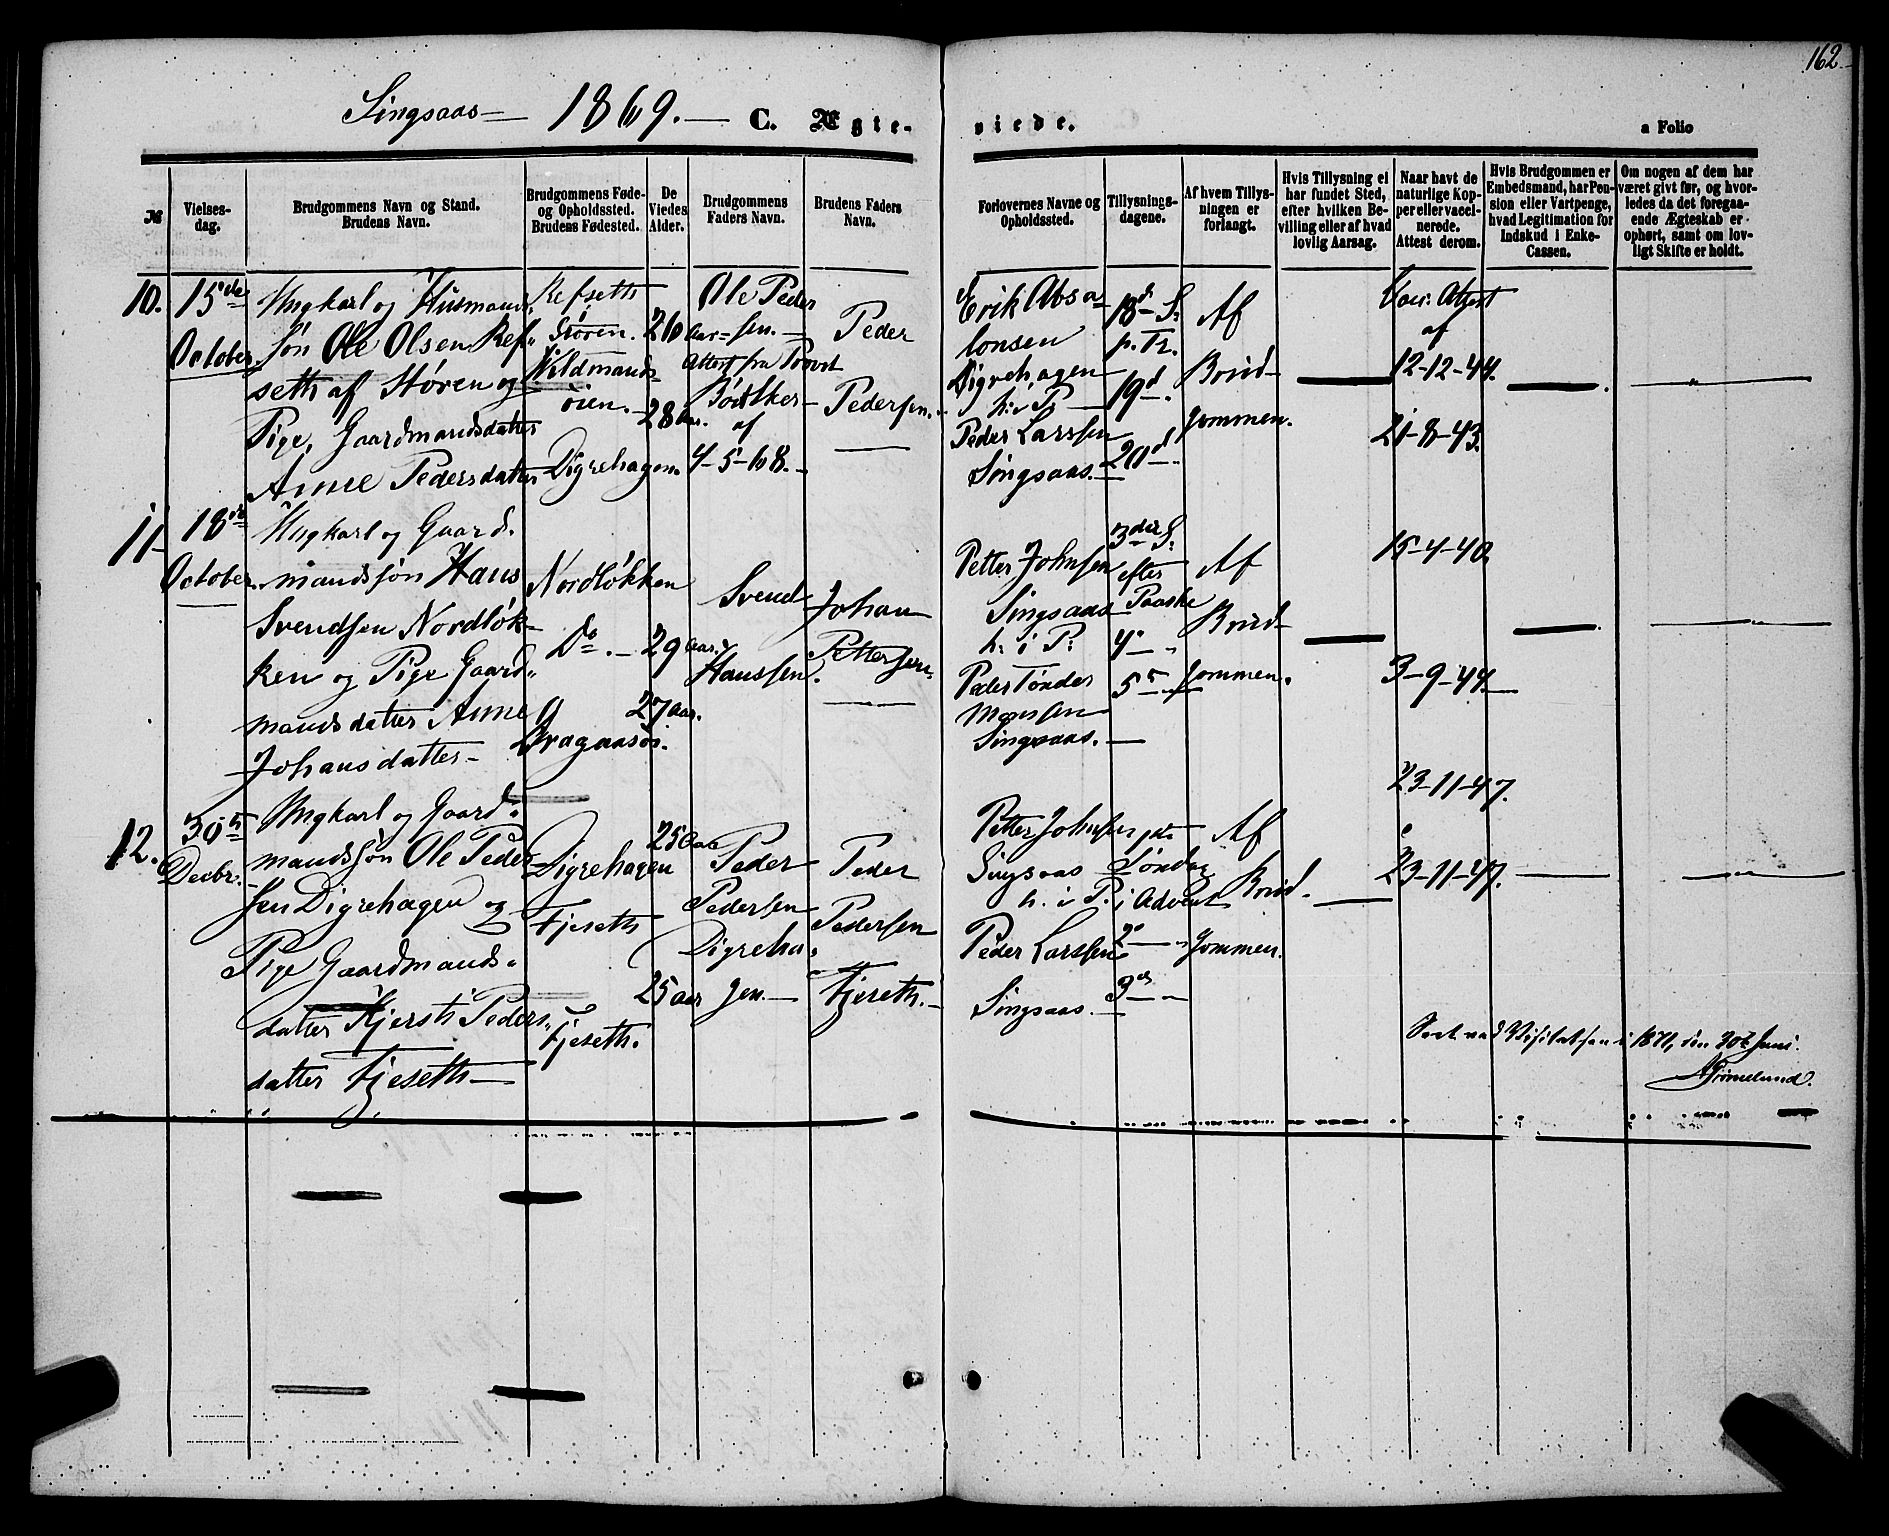 162.
Singsaas 1869. C. Ægteviede. a Folio
№
Vielsesdag.
Brudgommens Navn og Stand.
Brudens Navn.
Brudgommens Føde-
og Opholdssted.
Brudens Fødested.
De
Viedes
Alder.
Brudgommens
Faders Navn.
Brudens Faders
Navn.
Forlovernes Navne og
Opholdssted.
Tillysnings-
dagene.
Af hvem Tillys-
ningen er
forlangt.
Hvis Tillysning ei
har fundet Sted,
efter hvilken Be-
villing eller af hvad
lovlig Aarsag.
Naar havt de
naturlige Kop-
per eller vacci-
nerede.
Attest derom.
Hvis Brudgommen er
Embedsmand, har Pen-
sion eller Vartpenge,
hvad Legitimation for
Indskud i Enke-
Cassen.
Om nogen af dem har
været givt før, og hvor-
ledes da det foregaa-
ende Ægteskab er
ophørt, samt om lov-
ligt Skifte er holdt.
10.
15de
October
Ungkarl og Husmands
Søn Ole Olsen Ref-
seth af Støren og
Pige, Gaardmandsdatter
Anne Pedersdatter
Refseth
Støren.
Vildmands-
øien.
Digrehagen
26
Aar
28 Aar.
Ole Peder
sen.
Attest fra Provst
Bødtker
af
4-5-68.
Peder
Pedersen.
Erik Absa
lonsen
Digrehagen
h. i P.
Peder Larssen
Singsaas.
18d S.
p. Tr.
19d
20d
Af
Brud-
gommen.
Vac. Attest
af
12-12-44.
21-8-43.
11
18de
October
Ungkarl og Gaard-
mandssøn Hans
Svendsen Nordløk-
ken og Pige Gaard-
mandsdatter Anne
Johansdatter
Nordløkken
Do.
29 Aar.
27 Aar.
Svend
Hanssen.
Johan
Pettersen
Petter Johnsen
Singsaas
h. i P.
Peder Tønder
Monsen
Singsaas.
3die S.
efter
Paaske
4.
5
Af
Brud-
gommen.
15-4-40.
3-9-44.
12.
30te
Decbr.
Ungkarl og Gaard-
mandssøn Ole Peder
sen Digrehagen og
Pige Gaardmands-
datter Kjersti Peders-
datter Fjeseth
Digrehagen
Fjeseth
Fjeseth.
25 Aar
25 aar
Peder
Pedersen
Digreha-
gen.
Peder
Pedersen
Fjeseth.
Petter Johnsen
Singsaas
h. i P.
Peder Larssen
Singsaas.
Søndag
i Advent
2
3d
Af
Brud-
gommen.
23-11-47.
23-11-47.
Seet ved Visitatsen i 1871, den 30te Juni.
A Grimelund.